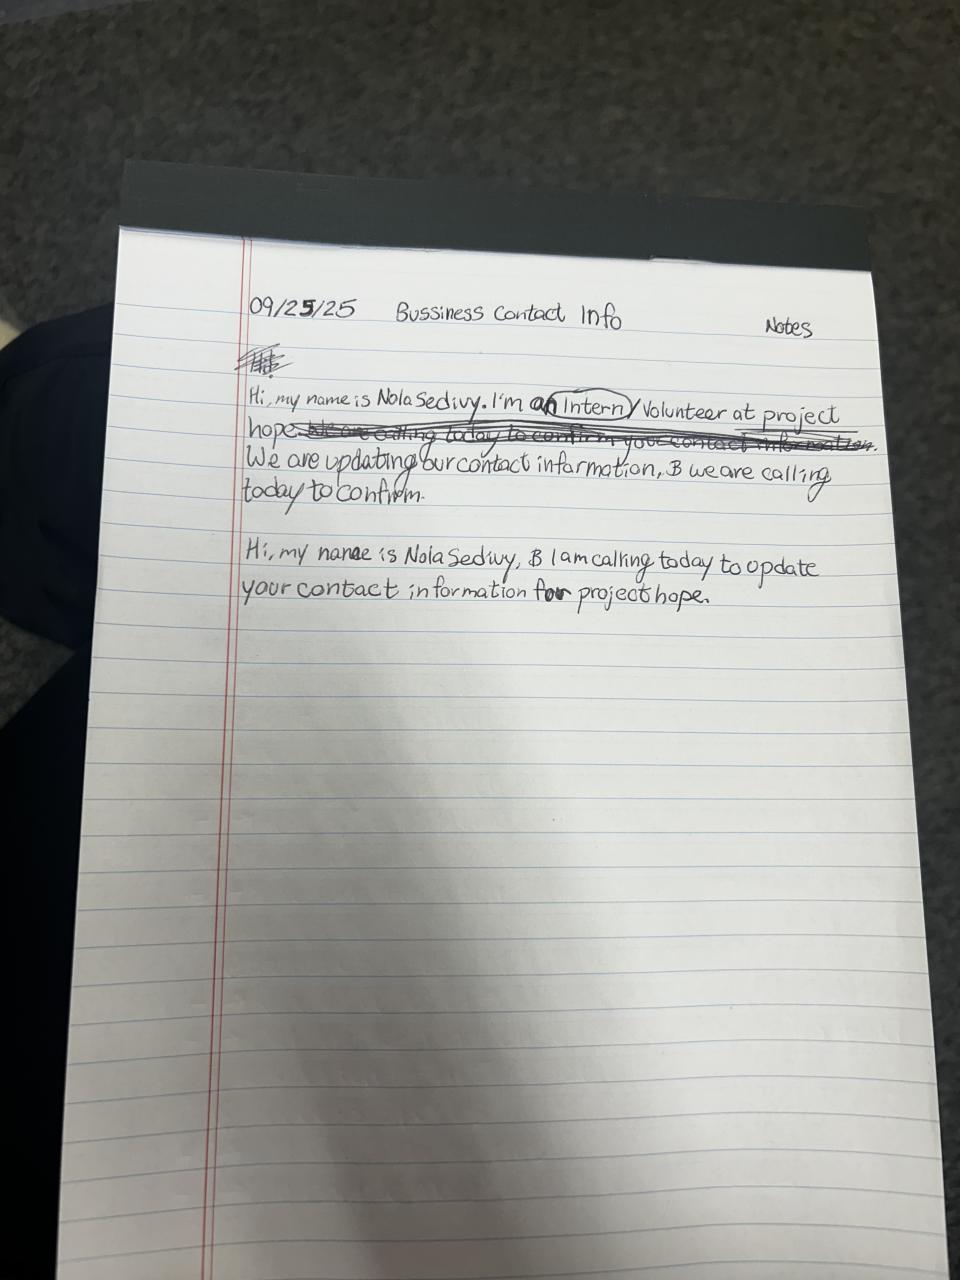 09/25/25 Bussiness Contact Info Notes
Hi, my name is Nola Sedivy. I'm an Intern / Volunteer at project
hope. We are calling today to confirm your contact information.
We are updating our contact information, B we are calling
today to confirm.
Hi, my name is Nola Sedivy, B I am calling today to update
your contact information for project hope.